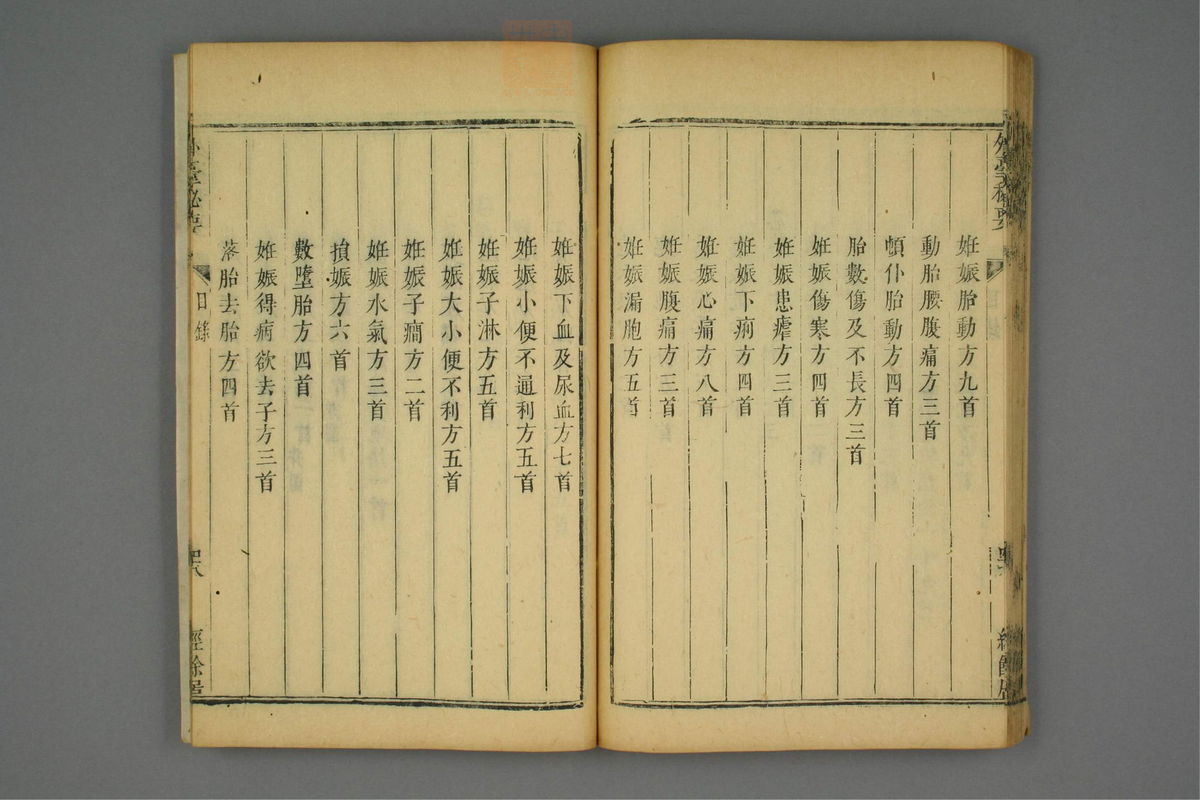 外臺秘要
姙娠胎動方九首
動胎腰腹痛方三首
頓仆胎動方四首
胎數傷及不長方三首
姙娠傷寒方四首
姙娠患瘧方三首
姙娠下痢方四首
姙娠心痛方八首
姙娠腹痛方三首
姙娠漏胞方五首
姙娠下血及尿血方七首
姙娠小便不通利方五首
姙娠子淋方五首
姙娠大小便不利方五首
姙娠子癎方二首
姙娠水氣方三首
損娠方六首
數墮胎方四首
姙娠得病欲去子方三首
落胎去胎方四首
外臺秘要
目錄
經餘居